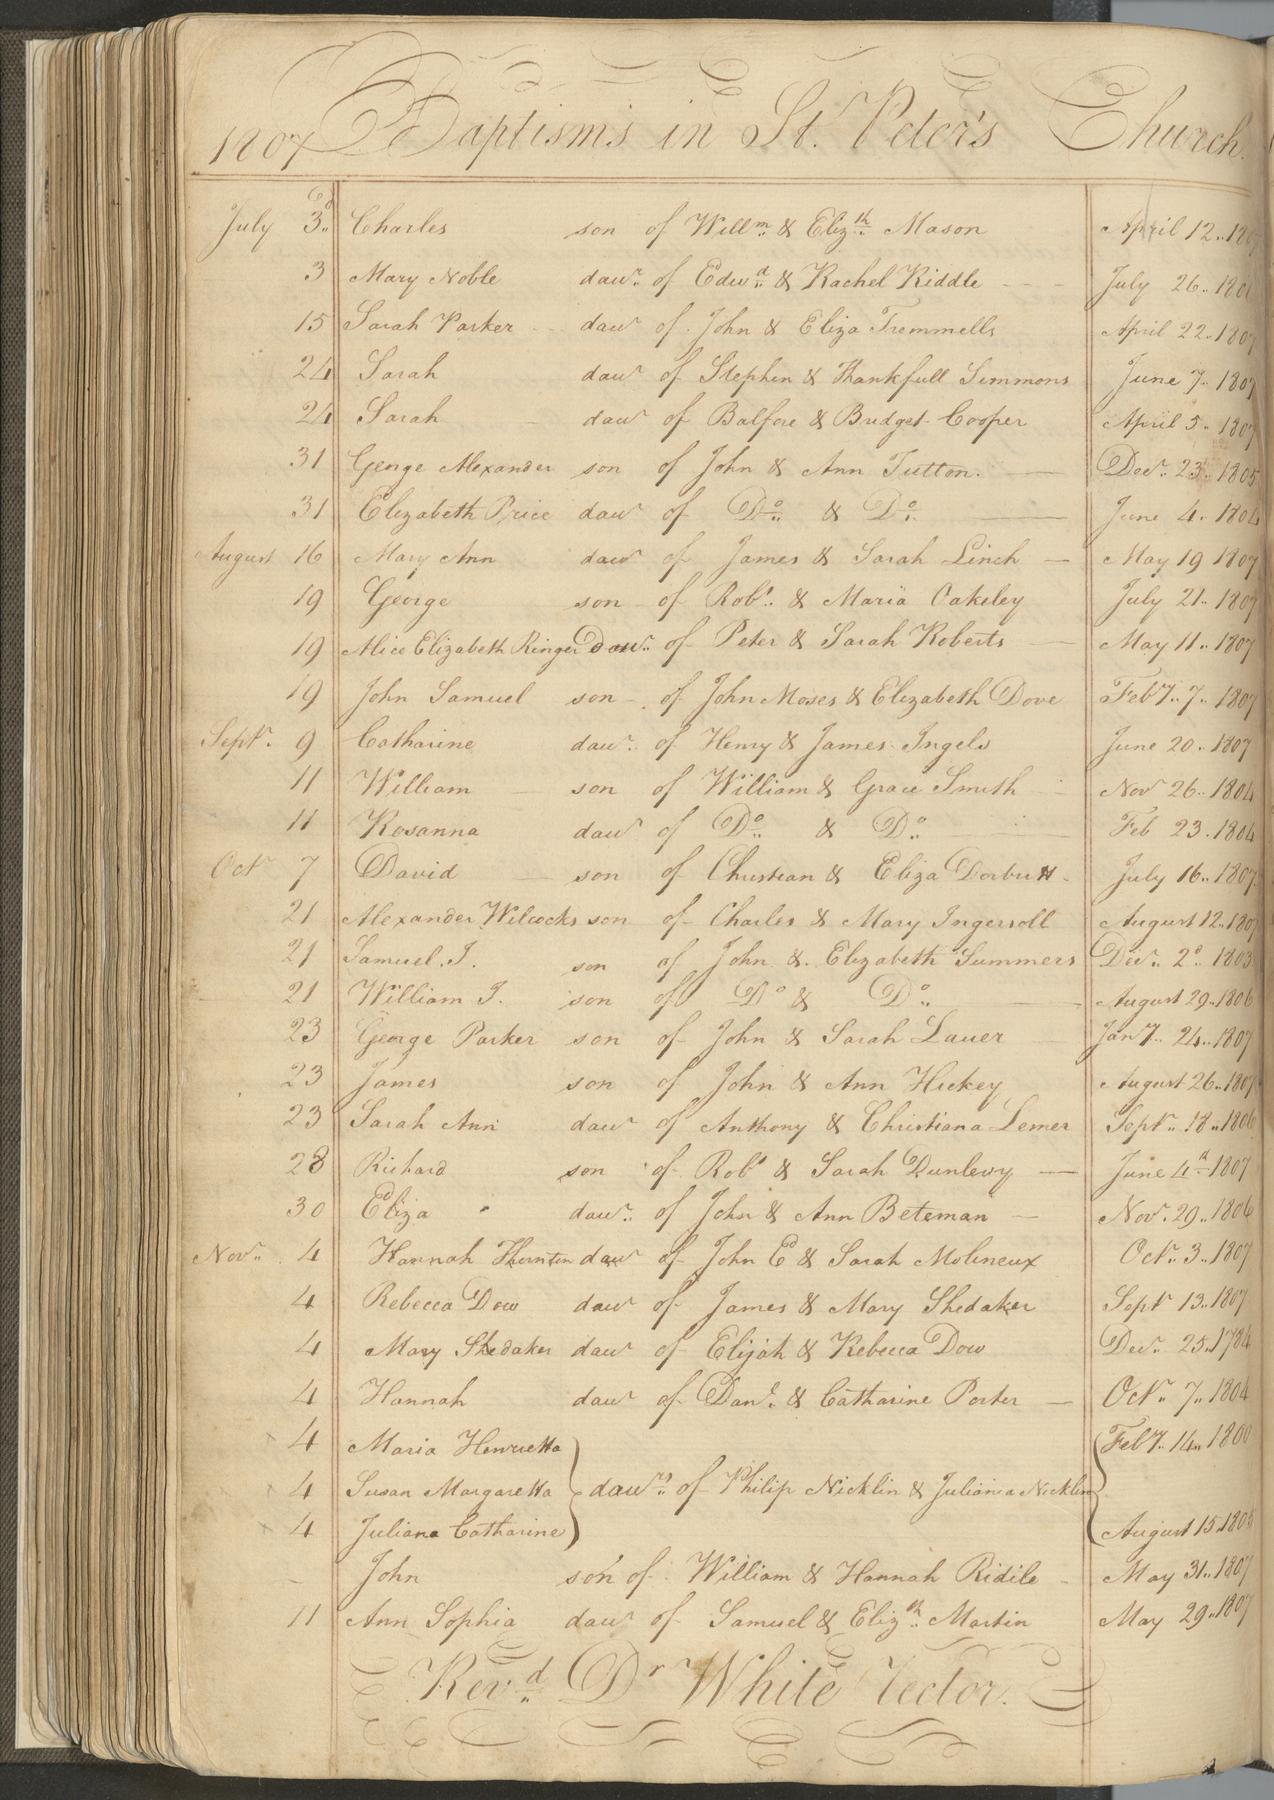 1807 Baptisms in St. Peter's Church.
July 3d.. Charles son of Willm. & Elizth. Mason April 12..1807
3 Mary Noble daur. of Edwd. & Rachel Riddle July 26..180
15 Sarah Parker daur of John & Eliza Tremmells April 22..1807
24 Sarah daur of Stephen & Thankfull Simmons June 7..1807
24 Sarah daur of Balfore & Bridget Cooper April 5..1807
31 George Alexander son of John & Ann Tutton. Decr.. 23..1805
31 Elizabeth Price daur of Do.. & Do.. June 4..1804
August 16 Mary Ann daur of James & Sarah Linch May 19 1807
19 George son of Robt.. & Maria Oakeley July 21..1807
19 Alice Elizabeth Ringer Daur.. of Peter & Sarah Roberts May 11..1807
19 John Samuel son of John Moses & Elizabeth Dove Feby..7..1807
Septr. 9 Catharine daur. of Henry & James Ingels June 20..1807
11 William son of William & Grace Smith Novr 26..1804
11 Rosanna daur of Do.. & Do.. Feb 23.1804
Octr 7 David son of Christian & Eliza Dorbutt July 16..1807
21 Alexander Wilcocks son of Charles & Mary Ingersoll August 12..1807
21 Samuel.I. son of John & Elizabeth Summers Decr.. 2d 1803
21 William I. son of Do & Do.. August 29..1806
23 George Parker son of John & Sarah Lauer Jany.. 24..1807
23 James son of John & Ann Hickey August 26..1807
23 Sarah Ann daur of Anthony & Christiana Lemer Septr.. 18..1806
28 Richard son of Robt & Sarah Dunlevy June 4th 1807
30 Eliza daur.. of John & Ann Beteman Novr.29..1806
Novr.. 4 Hannah Thornton daur of John Ed & Sarah Molineux Octr..3..1807
4 Rebecca Dow daur of James & Mary Shedaker Septr 13..1807
4 Mary Shedaker daur of Elijah & Rebecca Dow Decr.. 25..1784
4 Hannah daur of Danl.. & Catharine Porter Octr.. 7..1804
4 Maria Henrietta Feby.. 14..1800
4 Susan Margaretta daurs.. of Philip Nicklin & Juliana Nicklin
4 Juliana Catharine August 15.1805
John son of William & Hannah Ridile May 31..1807
11 Ann Sophia daur of Samuel & Elizth.. Martin May 29..1807
Revd.. Dr White rector.